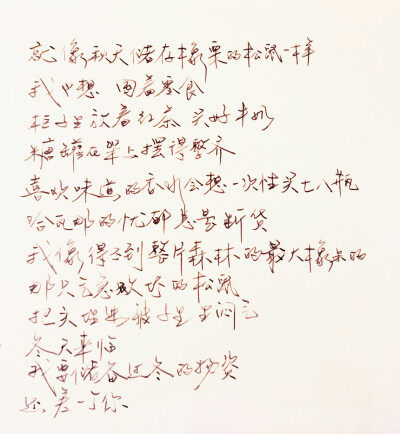 就像秋天储存橡栗的松鼠一样
我也想 囤着零食
柜子里放着红茶 买好牛奶
糖罐在架上摆得整齐
喜欢味道的香水会想一次性买七八瓶
哈瓦那的忧郁总是断货
我像得不到整片森林的最大橡果的
那只气急败坏的松鼠
把头埋进被子里生闷气
冬天来临
我要储备过冬的物资
还差一个你